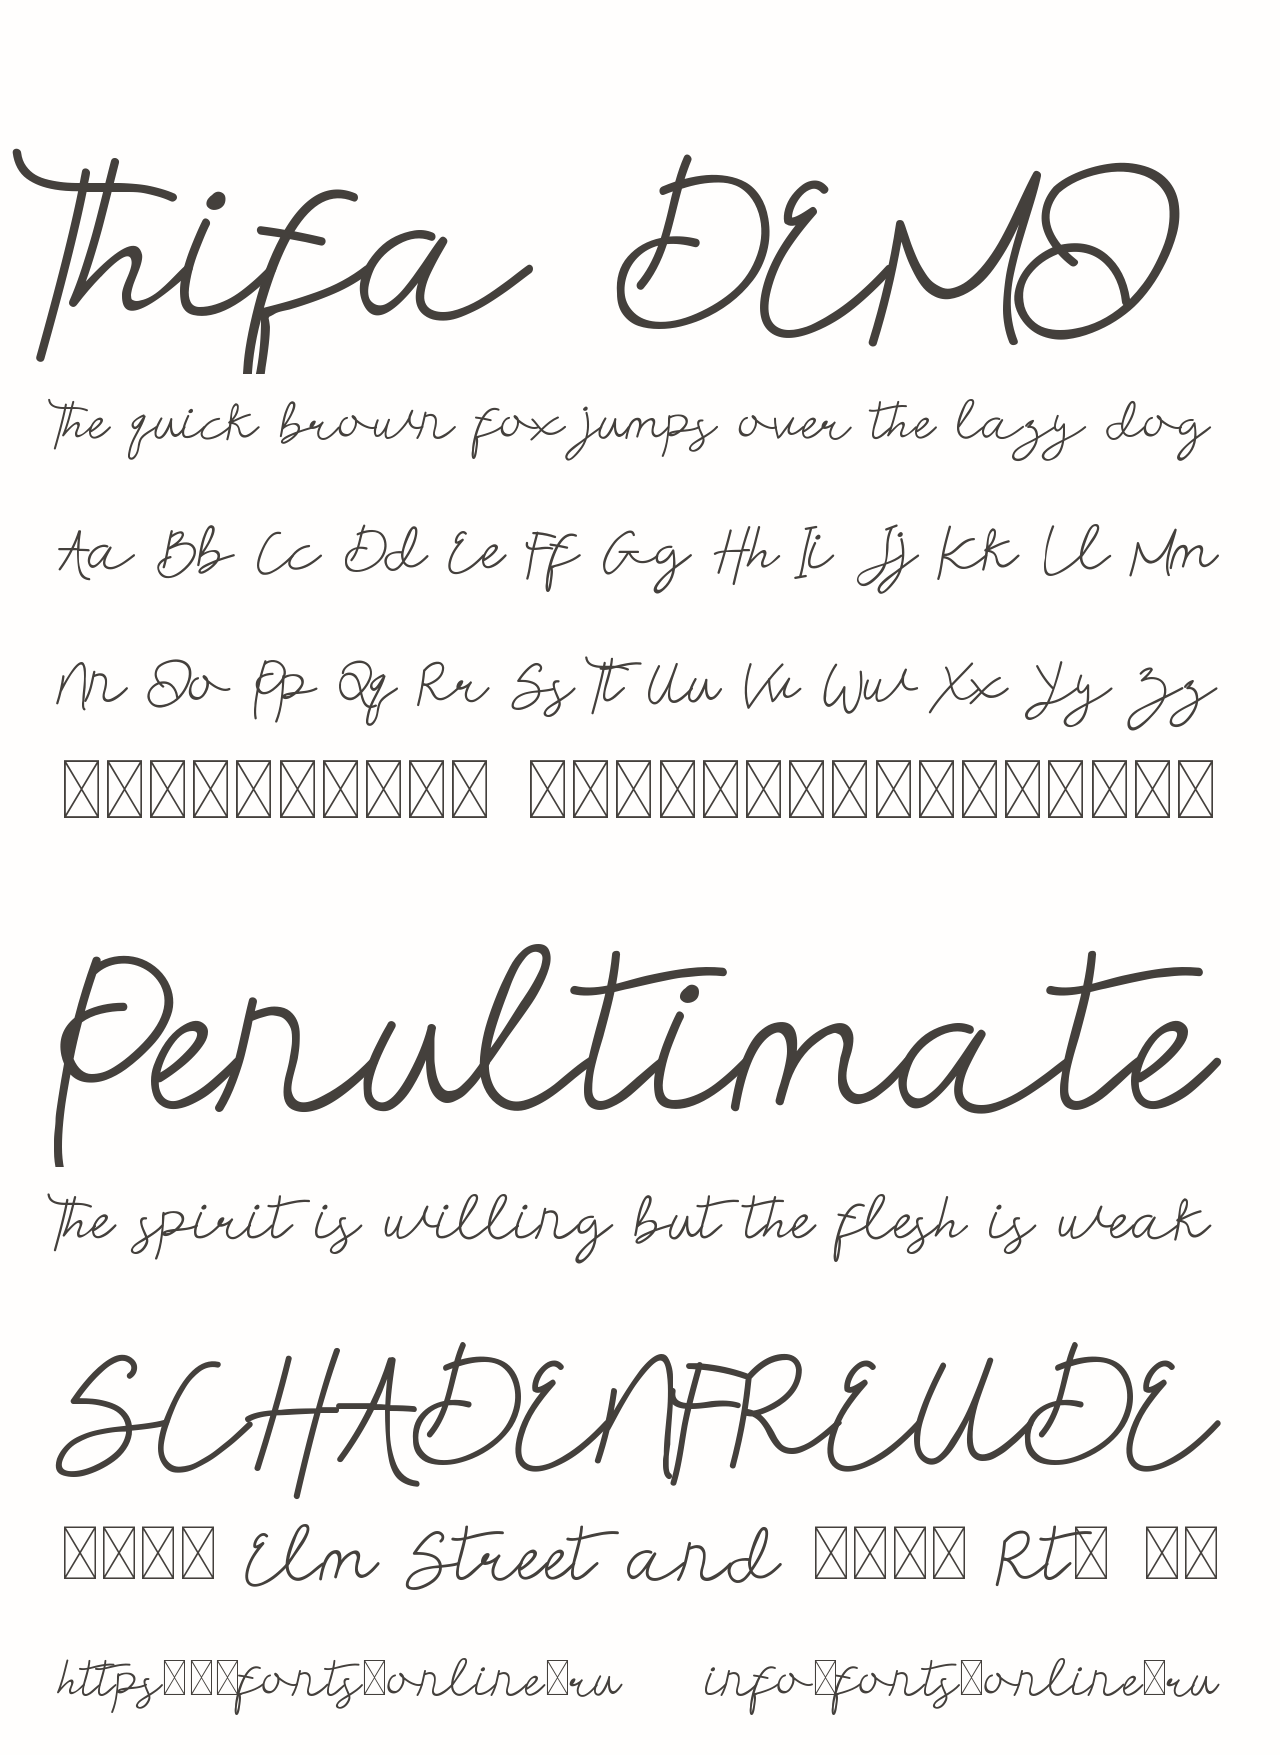 Thifa DEMO
The quick brown fox jumps over the lazy dog
Aa Bb Cc Dd Ee Ff Gg Hh Ii Jj Kk Ll Mm
Nn Oo Pp Qq Rr Ss Tt Uu Vv Ww Xx Yy Zz
Penultimate
The spirit is willing but the flesh is weak
SCHADENFREUDE
Elm Street and Rt
https fonts online ru info fonts online ru